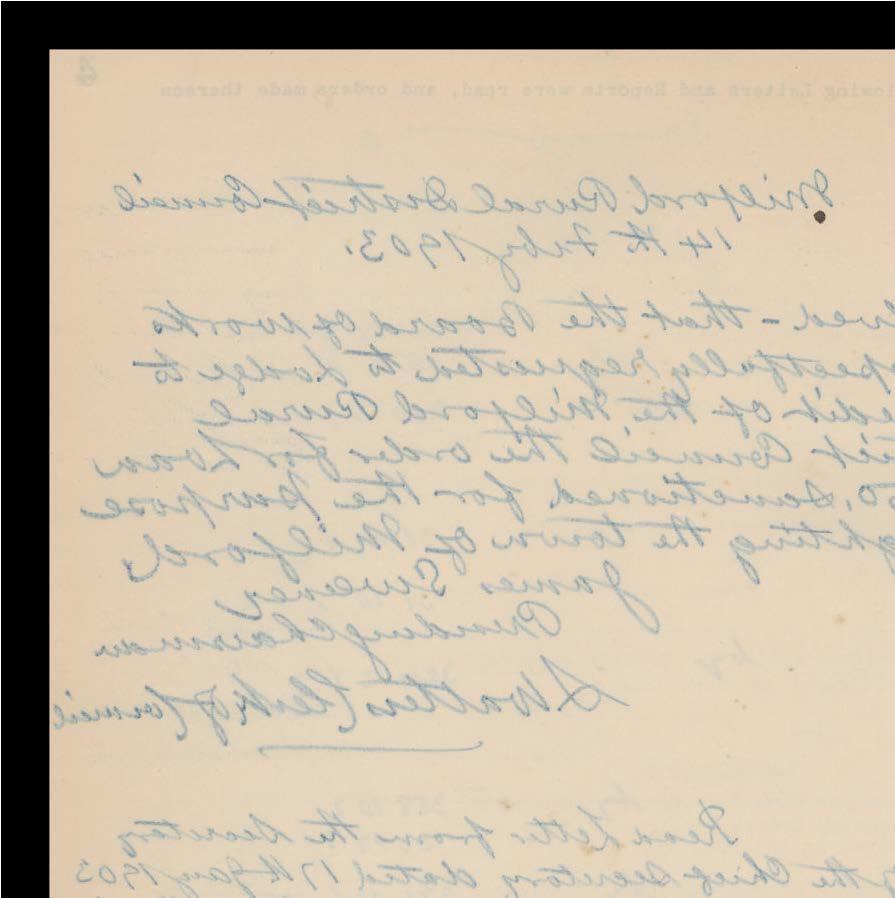 lowing Letters and Reports were read, and orders made thereon
Milford Rural District Council
14th Feby 1903.
lved - that the Board of works
spectfully requested to Lodge to
edit of the Milford Rural
rict Council the order for Loan
50, Sanctioned for the purpose
ghting the town of Milford
James Sweeney
Presiding Chairman
S Watters Clerk of Council
Read Letter from the Secretary
the Chief Secretary dated 17th Jany 1903